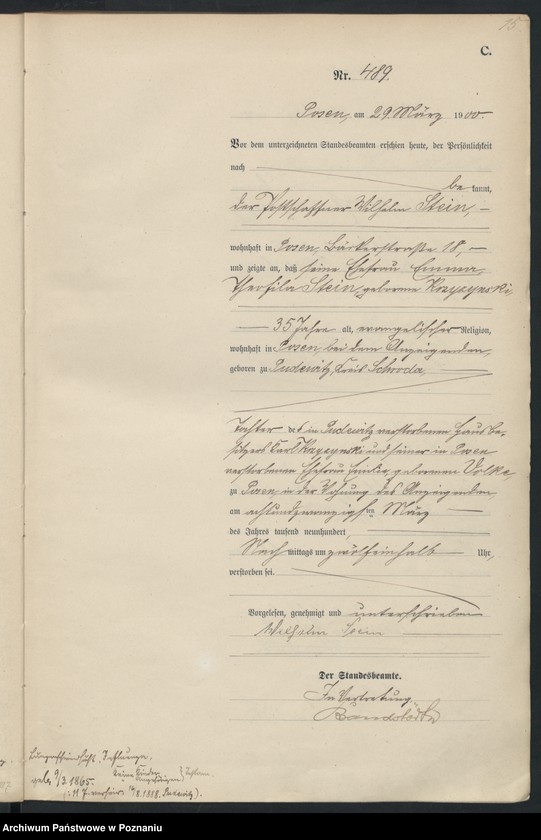 15.
C.
Nr. 489.
Posen, am 29. März 1900.
Vor dem unterzeichneten Standesbeamten erschien heute, der Persönlichkeit
nach
bekannt,
der Postschaffner Wilhelm Stein,
wohnhaft in Posen, Bäckerstraße 18,
und zeigte an, daß seine Ehefrau Emma
Theofila Stein, geborene Krzyzynski,
35 Jahre alt, evangelischer Religion,
wohnhaft in Posen, bei dem Anzeigenden,
geboren zu Pudewitz, Kreis Schroda,
Tochter des in Pudewitz verstorbenen Hausbe-
sitzers Carl Krzyzynski und seiner in Posen
verstorbenen Ehefrau geborenen
zu Posen, in der Wohnung des Anzeigenden
am achtundzwanzigsten März
des Jahres tausend neunhundert,
Nachmittags um zwölfeinhalb Uhr,
verstorben sei.
Vorgelesen, genehmigt und unterschrieben
Wilhelm Stein
Der Standesbeamte.
In Vertretung.
geb. 9/3. 1865.
1888. Pudewitz).
Archiwum Państwowe w Poznaniu